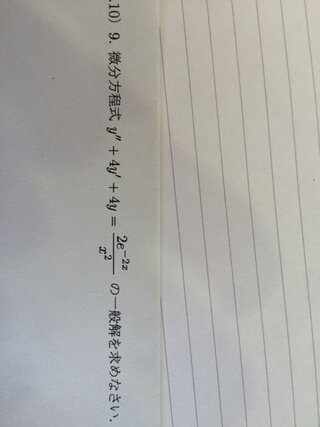 .10) 9. 微分方程式 y'' + 4y' + 4y = \frac{2e^{-2x}}{x^2} の一般解を求めなさい.